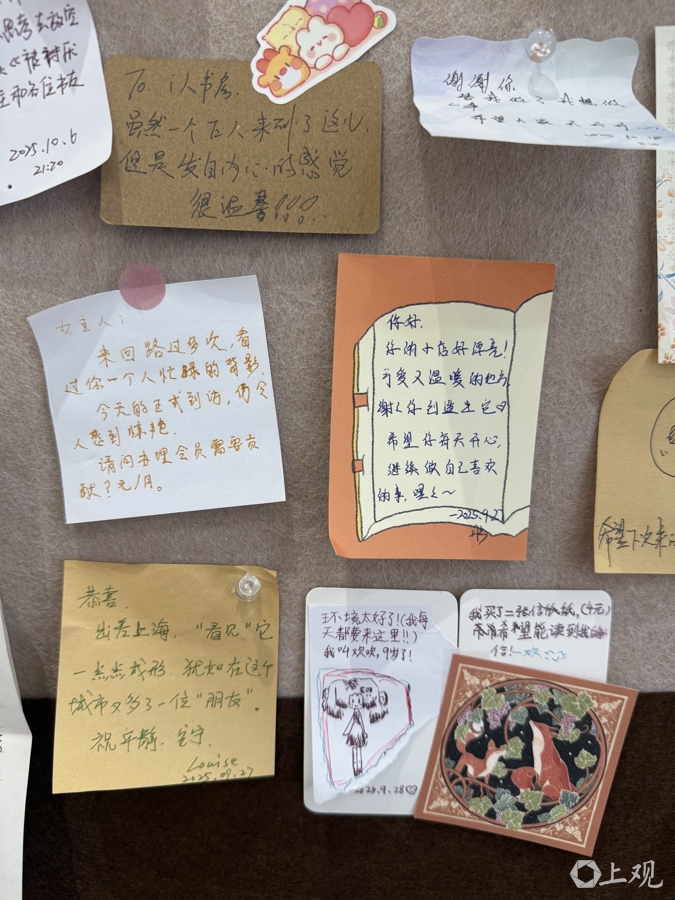 2025.10.6
21:20
To: 1人书房.
虽然一个古人来到了这儿,
但是发自内心的感觉
很温馨!!!..
谢谢你
女主人:
来回路过多次,看
过你一个人忙碌的背影,
今天的正式到访,仍令
人感到惊艳.
请问办理会员需要贡
献?元/月。
你好,
你的小店好漂亮!
可爱又温暖的地方
谢谢你创造出它
希望你每天开心,
继续做自己喜欢
的事,嘿嘿~
—2025.9.27
希望下次来
恭喜,
出差上海,“看见”它
一点点成形. 犹如在这个
城市又多了一位“朋友”。
祝平静.
Louise
2025.09.27
环境太好了!(我每
天都要来这里!!)
我叫欢欢,9岁了!
2025.9.28
我买了二张信纸,(4元)
希望能读到我
信!—欢
上观